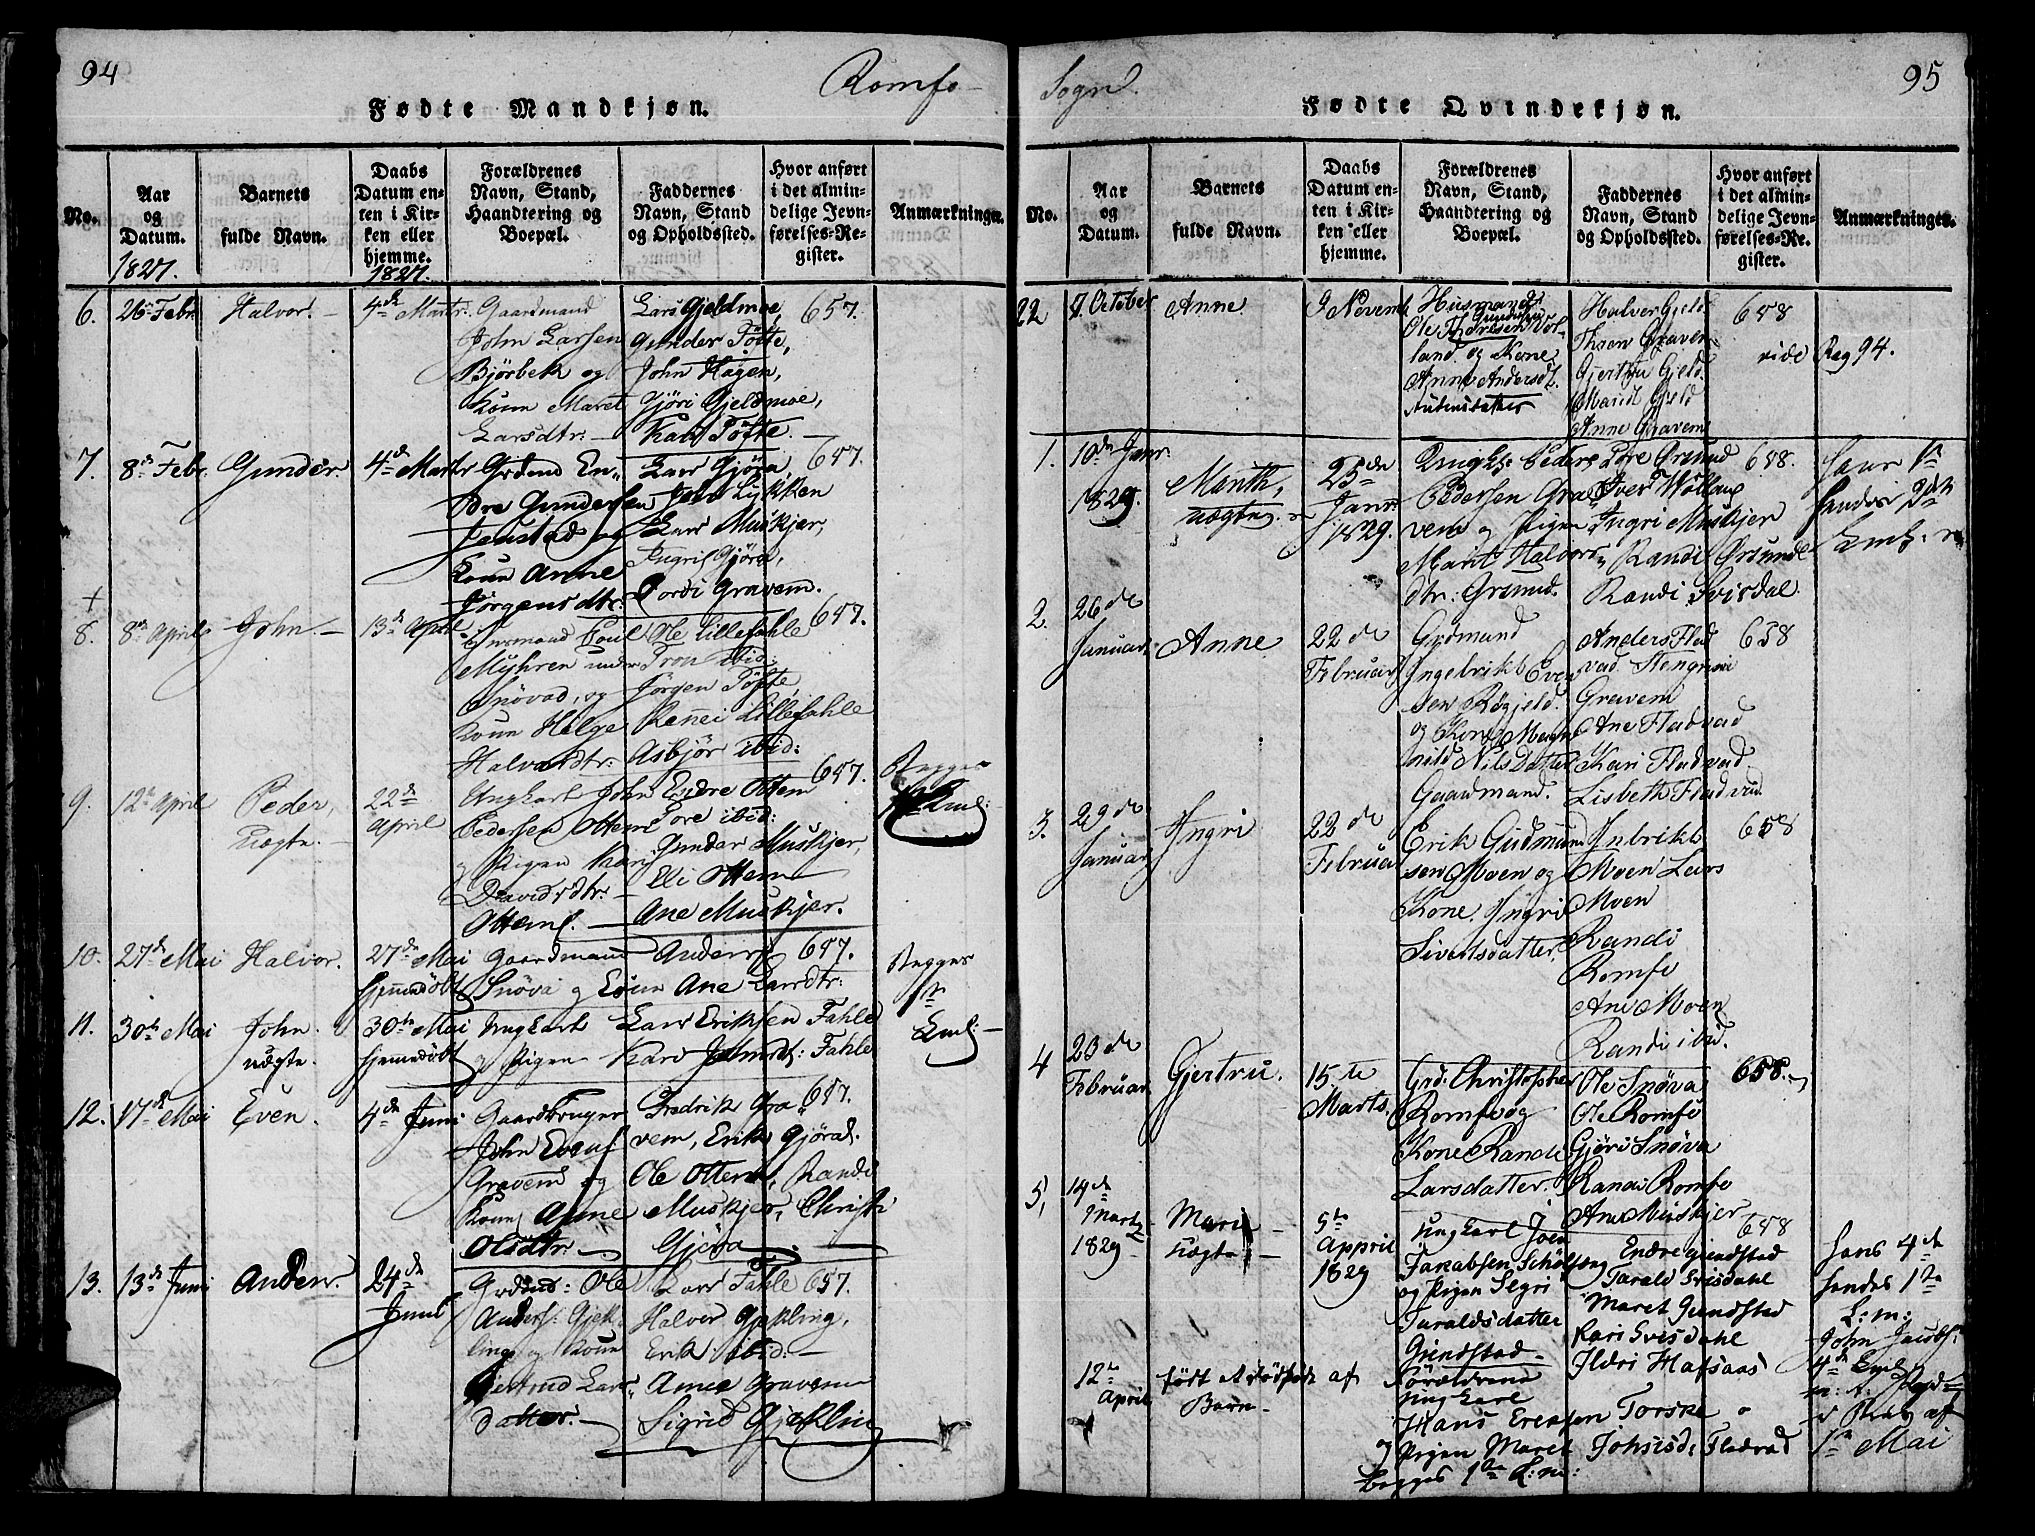 94
Romfo
Fødte Mandkjøn.
No.
Aar og Datum.
Barnets fulde Navn.
Daabs Datum enten i Kirken eller hjemme.
Forældrenes Navn, Stand, Haandtering og Boepæl.
Faddernes Navn, Stand og Opholdssted.
Hvor anført i det almindelige Jevnførelses-Register.
Anmærkninger.
1827.
1827.
6.
26de Febr.
Halvor.
4de Martz
Gaardmand
John Larsen
Bjørbek og
Koun Maret
Larsdtr:
Lars Gjeldmoe,
Gunder Töfte,
John Hagen,
Gjöri Gjeldmoe,
Kari Töfte.
657.
7.
8de Febr.
Gunder.
4de Martz
Grdmd En-
dre Gundersen
Jenstad og
Koun Anne
Jörgensdtr.
Lars Gjöra,
John Lykken
Lars Muskjer,
Ingrif Gjöra,
Gordi Gravem.
657.
+
8.
8de April
John.
13de April
Husmand Poul
Myhren under
Snövad, og
Koun Helge
Halvordtr:
Ole Lillefahle
Tron ibid:
Jörgen Töfte,
Rennei Lillefahle
Asbjör ibid:
657.
9.
12te April
Peder,
Uægte.
22de
April
Ungkarl John
Pedersen Ottem
og Pigen Kari
Davidsdtr:
Ottem.
Endre Ottem
Tore ibid:
Gunder Muskjer,
Eli Ottem
Ane Muskjer.
657.
Begges
1te Leml:
10.
27de Mai
Halvor.
27de Mai
hjemmedöbt
Gaardmand Anders
Snöva og Koun Ane Larsdtr:
657.
Begges
1te
Leml:
11.
30te Mai
John.
uægte.
30te Mai
hjemmedöbt
Ungkarl Lars Eriksen Fahle
og Pigen Kari Johnsd: Fahle
12.
17de Mai
Even.
4de Juni
Gaardbruger
John Evens
Gravem og
Koun Anne
Olsdtr
Fredrik Gra-
vem, Erik Gjöra.
Ole Ottem, Randi
Muskjer, Christi
Gjöra
657.
13.
13de Juni
Anders
24de
Juni
Grdmd: Ole
Anders: Gjek-
ling og Koun
Gjertrud Lars-
datter.
Lars Fahle
Halvor Gjekling,
Erik ibid:
Anne Gravem
Sigrid Gjekling
657.
95
Sogn.
Fødte Qvindekjøn.
No.
Aar og Datum.
Barnets fulde Navn.
Daabs Datum enten i Kirken eller hjemme.
Forældrenes Navn, Stand, Haandtering og Boepæl.
Faddernes Navn, Stand og Opholdssted.
Hvor anført i det almindelige Jevnførelses-Register.
Anmærkninger.
22
7. October
Anne
9 Novemb
Husmand
Ole Thorsen Vol-
land og Kone
Anne Andersdt.
Halver Gjeld
Thron Gravem
Gjertru Gjeld
Marit Gjeld
Anne Gravem
658
vide Pag 94.
1.
10de Janr
1829.
Marith,
uægte.
25de
Janr
1829.
Ungk: Peder
Pedersen Gra-
vem og Pigen
Marit Halvors-
dtr: Grsund.
Tore Grsund
Iver Wollan
Ingri Muskjer
Randi Örsund
Randi Svisdal
658.
hans 1te
hendes 2det
Lmh:
2.
26de
Januar
Anne
22de
Februar
Grdmand
Ingebrikt Even
sen Røgjeld.
og Kone Mag-
nild Nilsdatter
Gaardmand.
Anders Flad
vad. Stengrim
Gravem
Ane Fladvad
Kari Fladvad.
Lisbeth Fladvad.
658
3.
29de
Januar
Ingri
22de
Februar
Erik Gudmund
sen Moen og
Kone. Ingri
Sivertsdatter.
Inbrikt
Moen Lars
Moen
Randi
Romfo
Ane Moen
Randi ibid.
658
4
23de
Februar
Gjertru.
15te
Marts.
Grd: Christopher
Romfo og
Kone Randi
Larsdatter.
Ole Snöva
Ole Romfo
Gjöri Snöva
Randi Romfo
Ane Muskjer
658.
5,
14de
Martz
1829
Mari
uægte
5te
Appril
1829
ungkarl Joen
Jakabsen Schölseng
og Pigen Segri
Taraldsdatter
Grindstad
Endre Grindstad
Tarald Svisdahl
Maret Grindstad
Kari Svisdahl
Ildri Hafsaas
658
hans 4de
hendes 1te
L:m:
John Jacobs:
4de Leml
12te
April
födt et dödfödt af
Barn
Forældrene
ung karl
Hans Ereksen Torske
og Pigen Maret Johnsd: Fladvad
begges 1te L:m:
1te Mai